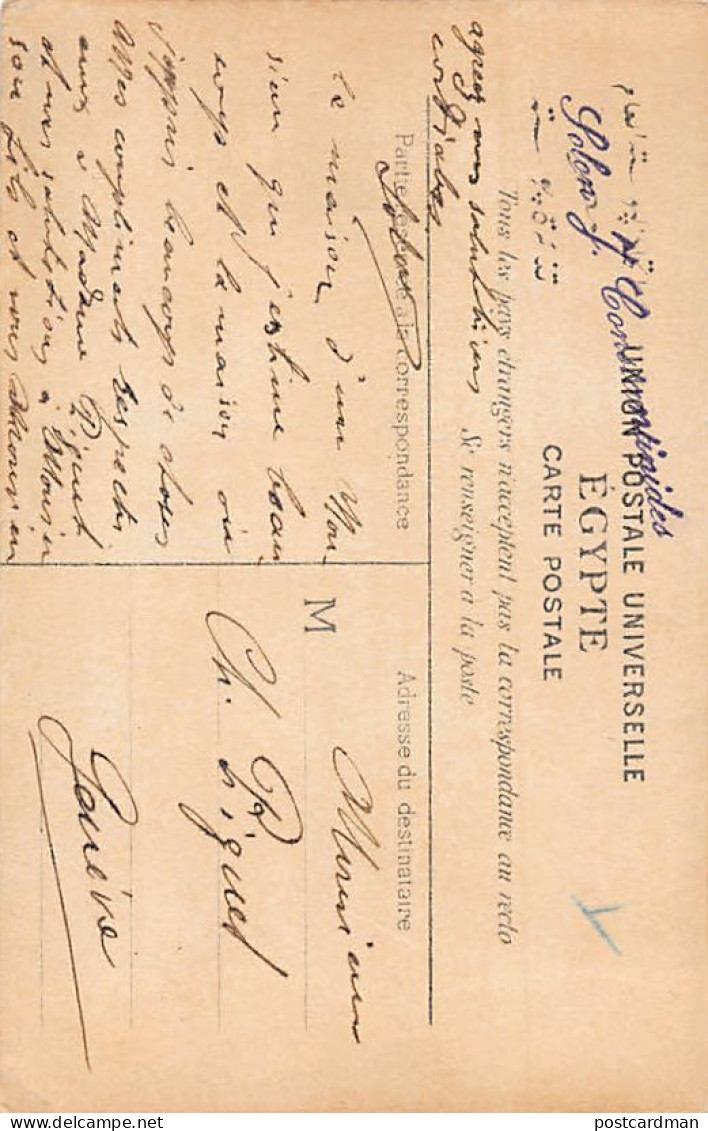 UNION POSTALE UNIVERSELLE
ÉGYPTE
CARTE POSTALE
Tous les pays étrangers n'acceptent pas la correspondance au recto
Se renseigner à la poste
Partie réservée à la correspondance
Adresse du destinataire
La maison d'un Mon-
sieur que j'estime beau
coup et la maison où
j'appris beaucoup de choses
Mes compliments respectu
eux à Madame Piguet
et mes salutations à Monsieur
son fils et vous Monsieur
agréez mes salutations
cordiales
Solon
Solon J.
M
Monsieur
Ch. Piguet
Genève
postcardman